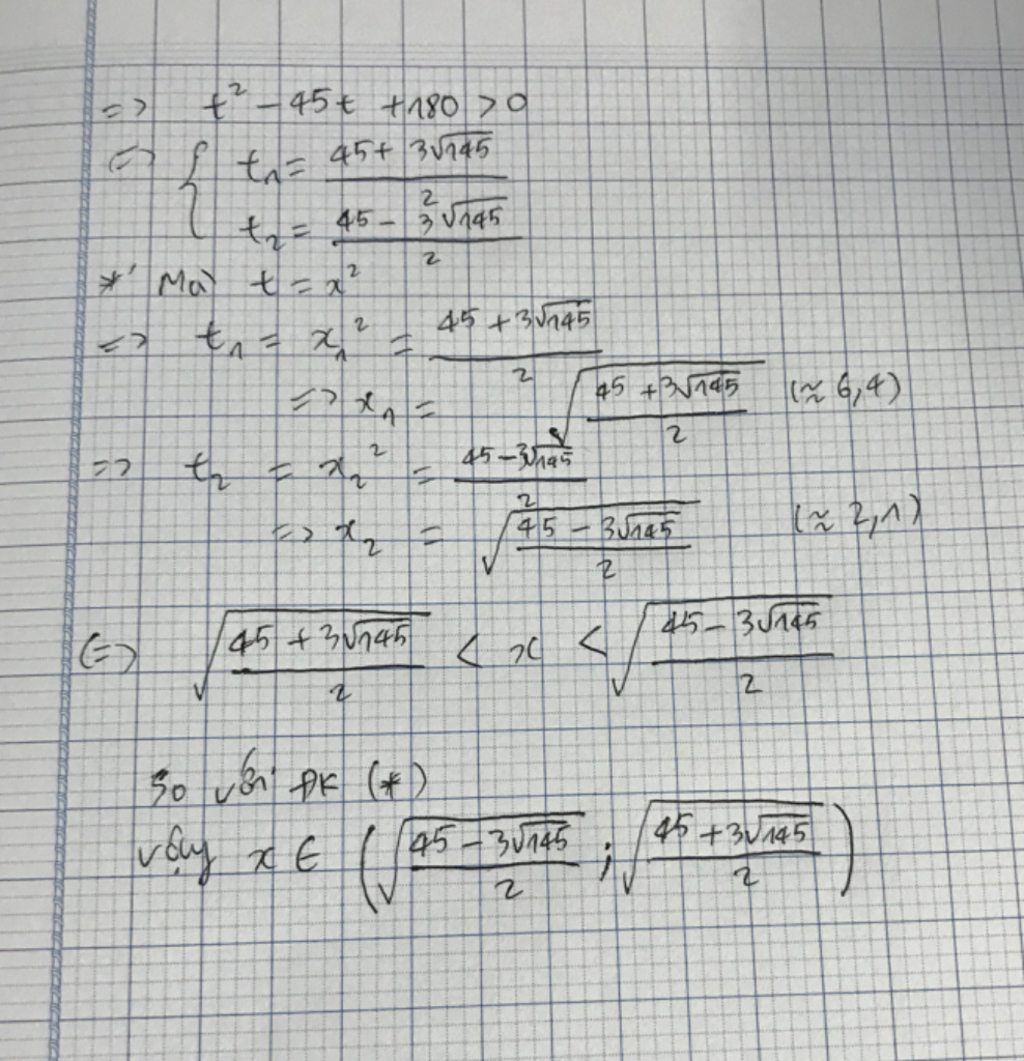 => t² - 45t + 180 > 0
<=> { t₁ = (45 + 3√145)/2
t₂ = (45 - 3√145)/2
* Mà t = x²
=> t₁ = x₁² = (45 + 3√145)/2
=> x₁ = √((45 + 3√145)/2) (≈ 6,4)
=> t₂ = x₂² = (45 - 3√145)/2
=> x₂ = √((45 - 3√145)/2) (≈ 2,1)
<=> √((45 + 3√145)/2) < x < √((45 - 3√145)/2)
So với ĐK (*)
vậy x ∈ (√((45 - 3√145)/2) ; √((45 + 3√145)/2))